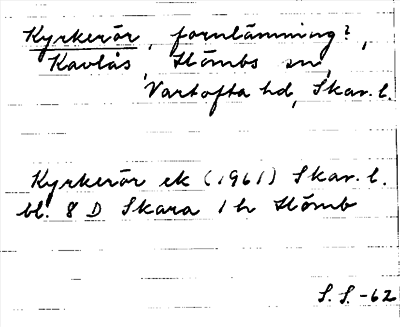 Kyrkerör, fornlämning?,
Kavlås, Stömbs sn,
Vartofta hd, Skar. l.
Kyrkerör ek (1961) Skar. l.
bl. 8 D Skara 1 h Stömb
S. S. -62